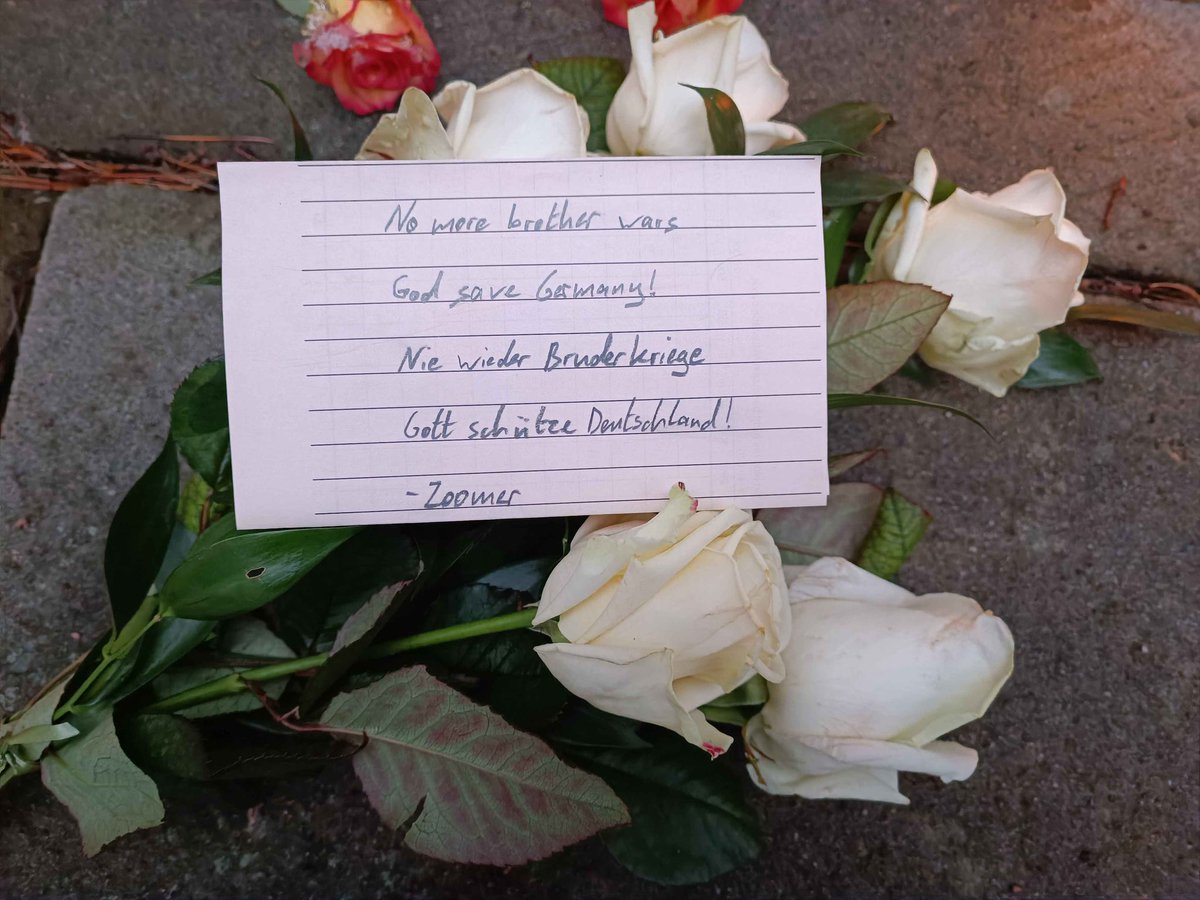 No more brother wars
God save Germany!
Nie wieder Bruderkriege
Gott schütze Deutschland!
-Zoomer